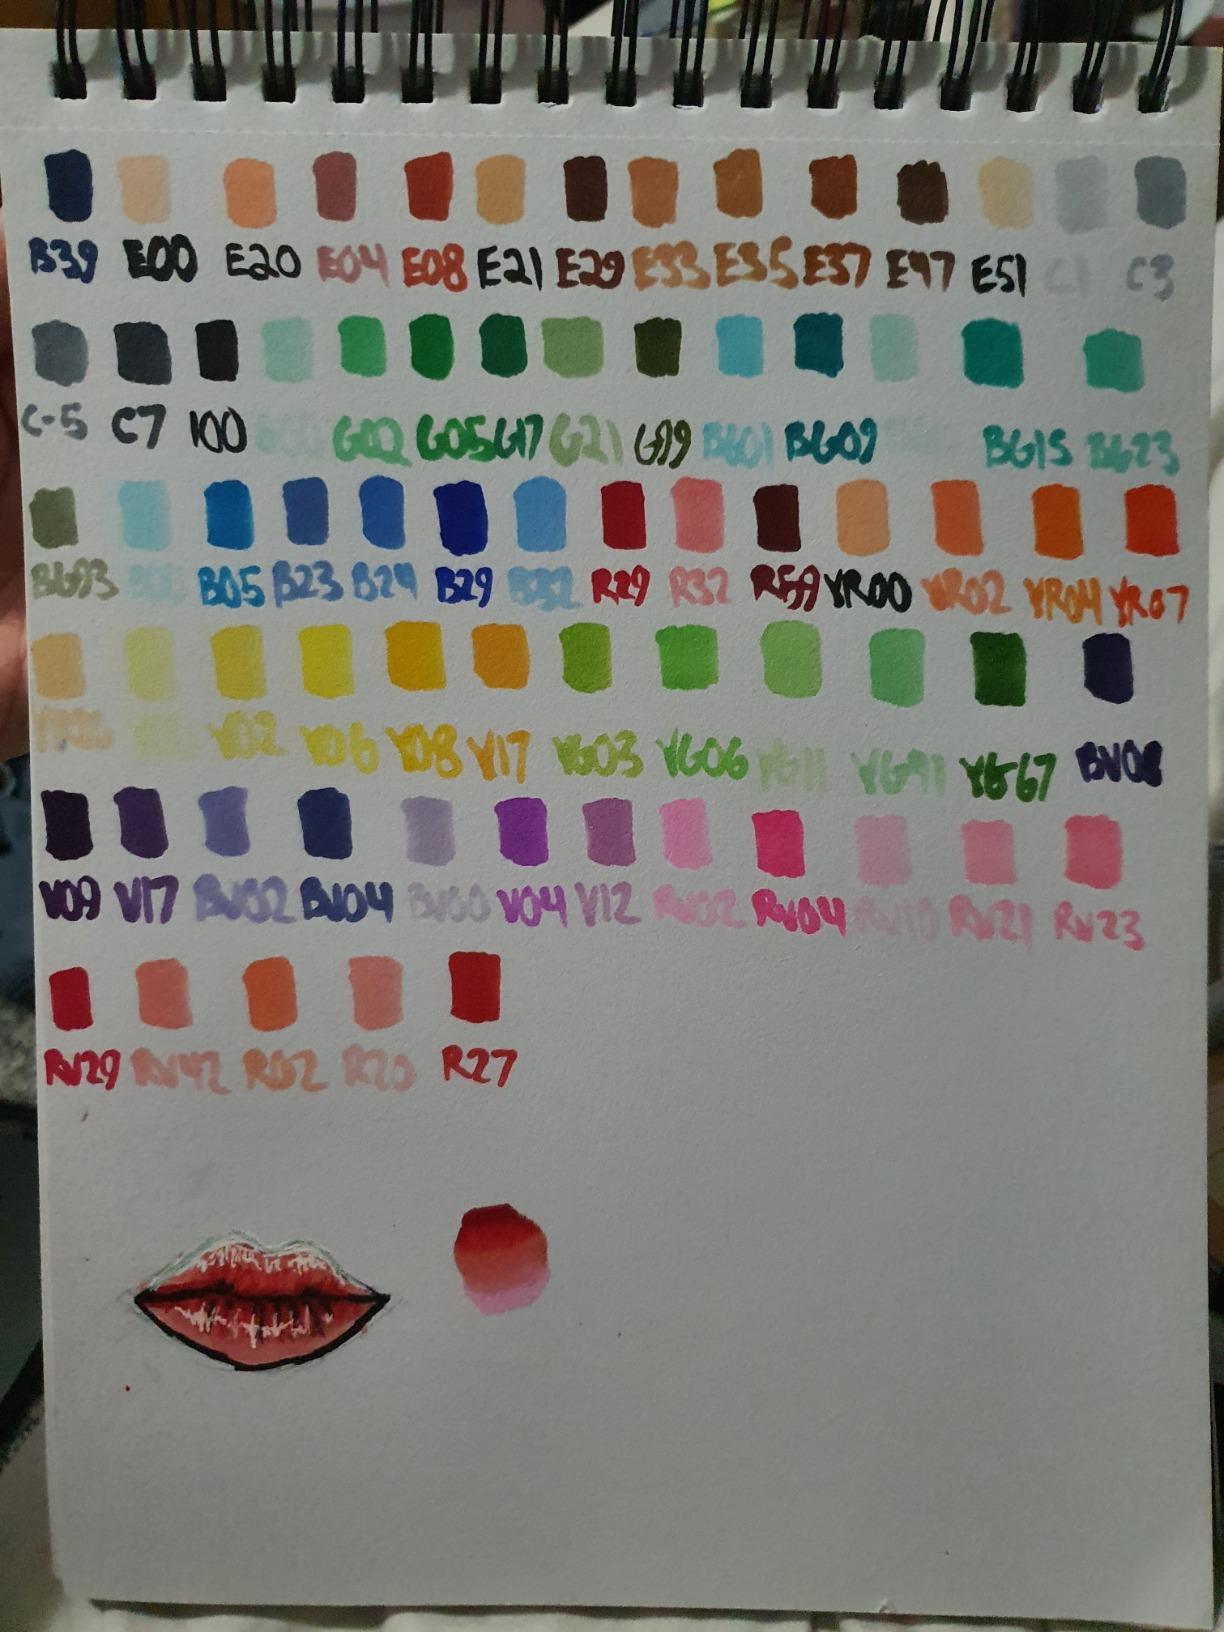 B39 E00 E20 E04 E08 E21 E29 E33 E35 E37 E47 E51 C1 C3
C-5 C7 100 G02 G05 G17 G21 G99 BG01 BG09 BG15 BG23
BG93 B05 B23 B24 B29 B32 R29 R32 R59 YR00 YR02 YR04 YR07
Y02 Y06 Y08 Y17 YG03 YG06 YG11 YG41 YG67 BV08
V09 V17 BV02 BV04 BV00 V04 V12 RV02 RV04 RV10 RV21 RV23
RV29 RV42 R02 R20 R27